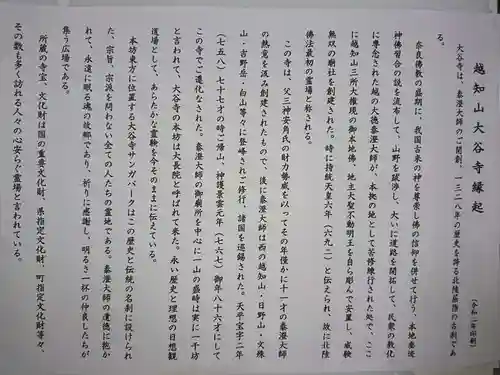 越知山大谷寺縁起
(令和二年四刷)
大谷寺は、泰澄大師のご開創、一三二八年の歴史を誇る北陸屈指の古刹であ
る。
奈良佛教の盛期に、我国古来の神を尊崇し佛の信仰を併せて行う、本地垂迹
神佛習合の説を流布して、山野を跋渉し、大いに道路を開拓して、民衆の教化
に専念された越の大徳泰澄大師が、本拠の地として苦修練行された処で、ここ
に越知山三所大権現の御本地佛、地主大聖不動明王を自ら彫んで安置し、威験
無双の廟社を創建された。時に持統天皇六年（六九二）と伝えられ、故に北陸
佛法最初の霊場と称される。
この寺は、父三神安角氏の財力勢威を以ってその年僅かに十一才の泰澄大師
の熱意を汲み創建されたもので、後に泰澄大師は西の越知山・日野山・文殊
山・吉野岳・白山等々に登峰されご修行、諸国を巡錫された。天平宝字二年
（七五八）七十七才の時ご帰山、神護景雲元年（七六七）御年八十六才にして
この寺でご遷化なされた。泰澄大師の御廟所を中心に一山の盛時は実に一千坊
と言われて、大谷寺の本坊は大長院と呼ばれて来た。永い歴史と理想の日想観
道場として、あらたかな霊験を今そのままに伝えている。
本坊東方に位置する大谷寺サンガパークはこの歴史と伝統の名刹に設けられ
た、宗旨、宗派を問わない全ての人たちの霊地である。泰澄大師の遺徳に抱か
れて、永遠に眠る魂の故郷であり、祈りに感謝し、明るさ一杯の仲良したちが
集う広場である。
所蔵の寺宝、文化財は国の重要文化財、県指定文化財、町指定文化財等々、
その数も多く訪れる人々の心安らぐ霊場と言われている。